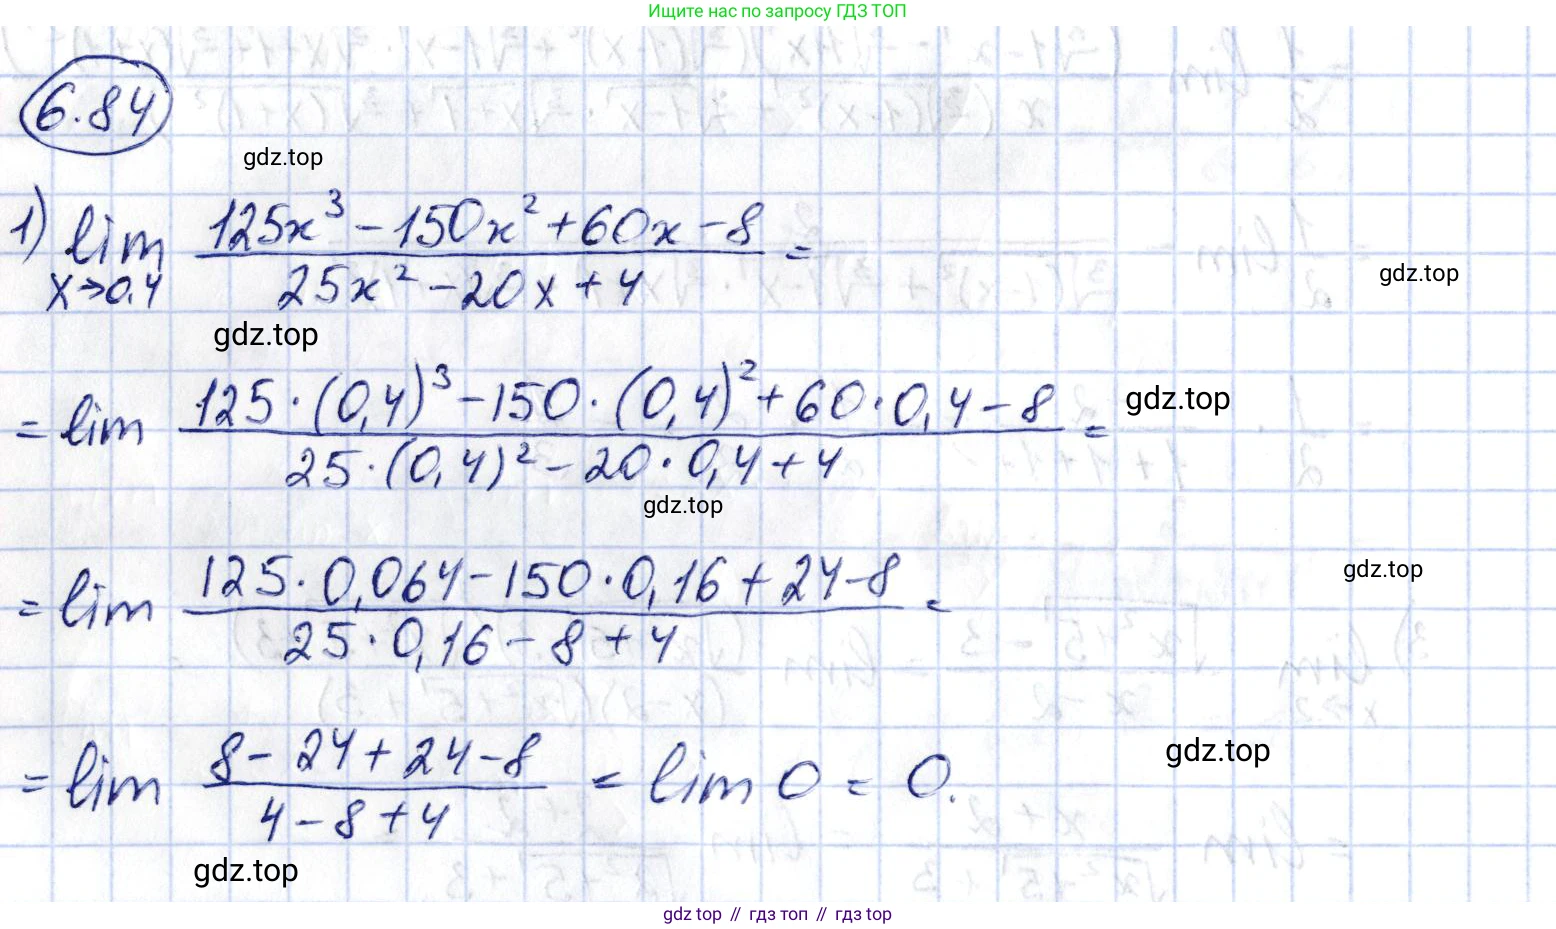 Ищите нас по запросу ГДЗ ТОП
6.84
gdz.top
1) lim x→0,4 (125x³ − 150x² + 60x − 8) / (25x² − 20x + 4) =
gdz.top
gdz.top
= lim (125·(0,4)³ − 150·(0,4)² + 60·0,4 − 8) / (25·(0,4)² − 20·0,4 + 4) =
gdz.top
gdz.top
= lim (125·0,064 − 150·0,16 + 24 − 8) / (25·0,16 − 8 + 4) =
gdz.top
= lim (8 − 24 + 24 − 8) / (4 − 8 + 4) = lim 0 = 0.
gdz.top
gdz.top
gdz top // гдз топ // гдз top